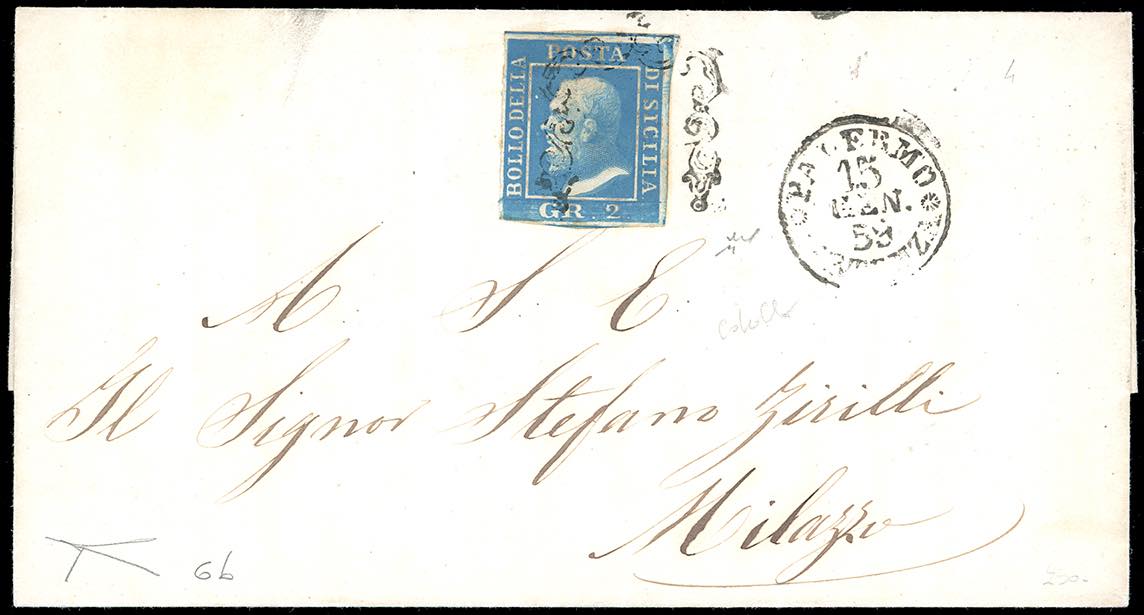 BOLLO DELLA
POSTA
DI SICILIA
GR. 2
PALERMO
15
GEN.
59
A S. E.
Il Signor Stefano Zirilli
Milazzo
6b
4